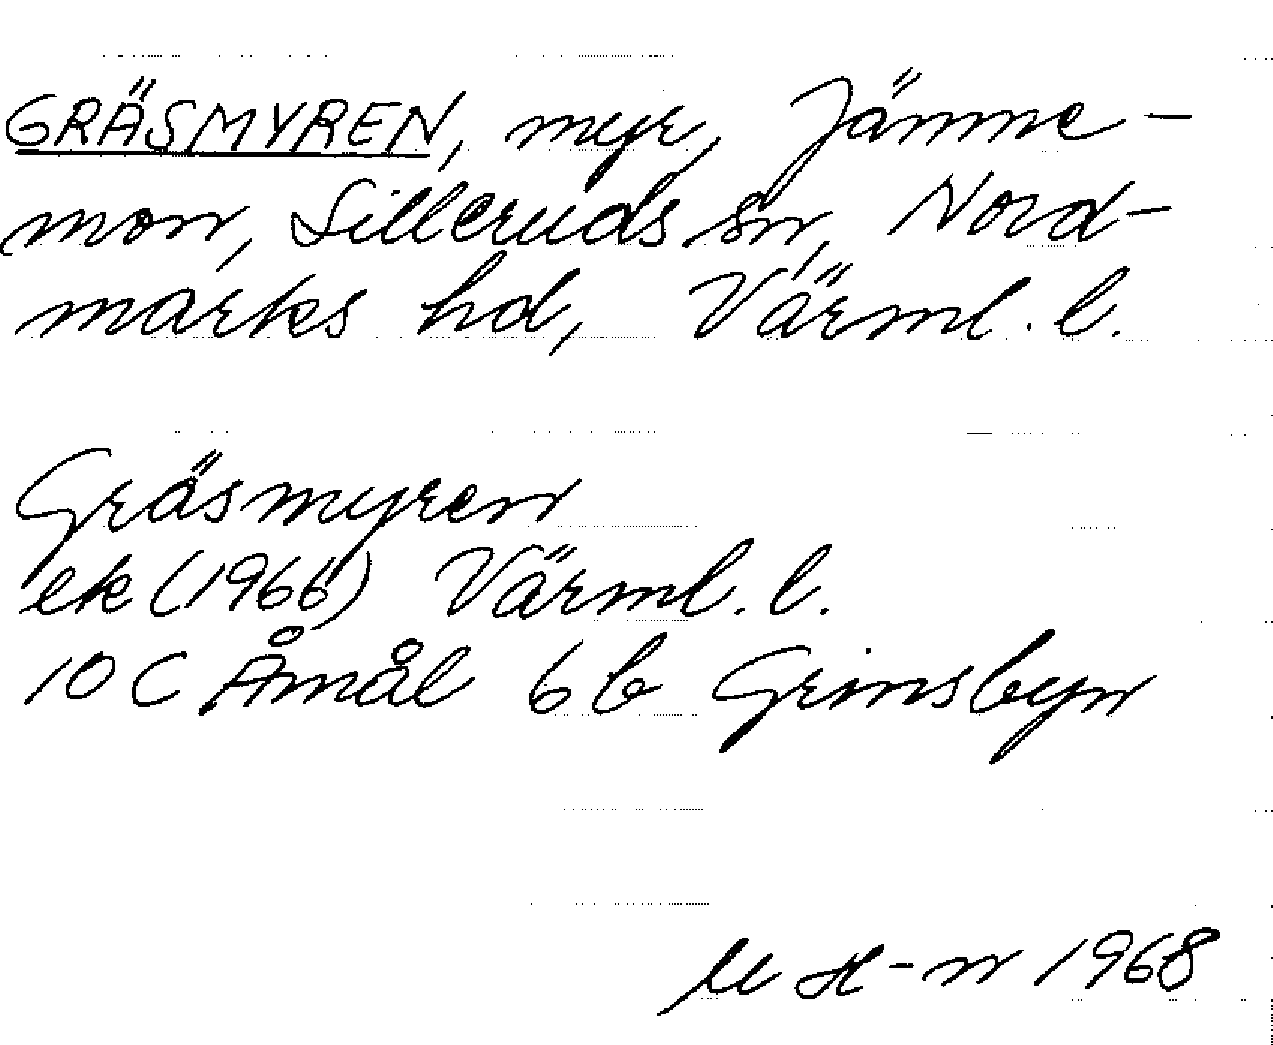 GRÄSMYREN, myr, Jänne-
mon, Silleruds sn, Nord-
marks hd, Värml. l.
Gräsmyren
ek (1966) Värml. l.
10 C Åmål 6 b Grinsbyn
M H-n 1968